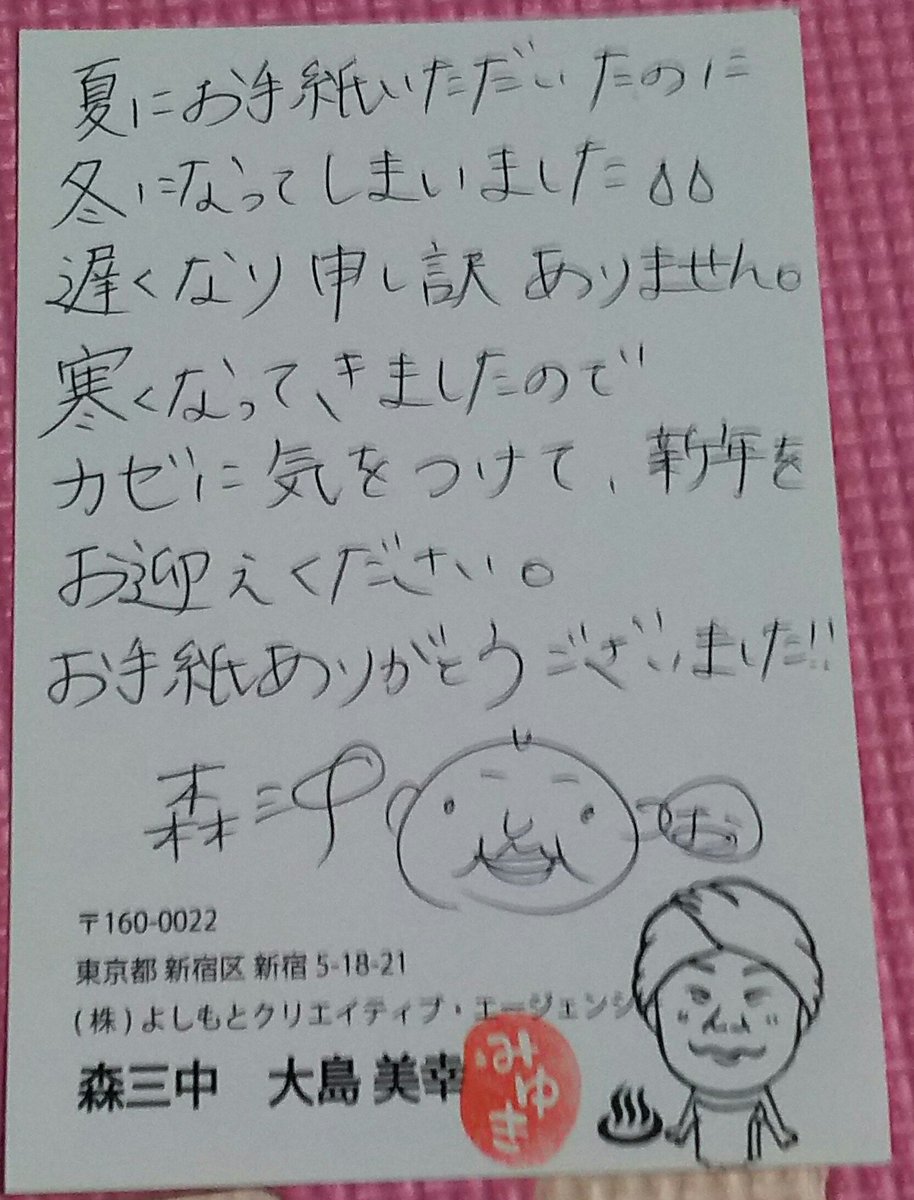 夏にお手紙いただいたのに
冬になってしまいました
遅くなり申し訳ありません。
寒くなってきましたので
カゼに気をつけて、新年を
お迎えください。
お手紙ありがとうございました!!
森三中
お
〒160-0022
東京都 新宿区 新宿 5-18-21
(株)よしもとクリエイティブ・エージェンシ
森三中 大島 美幸
みゆき